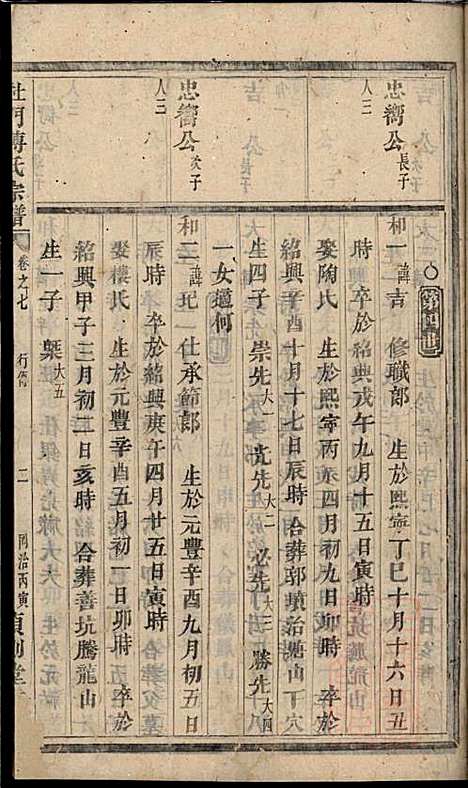 忠嚮公長子
人三
忠嚮公次子
人三
和一諱吉 修職郎 生於熙寧丁巳十月十六日丑
時 卒於紹興戊午九月十五日寅時
娶陶氏 生於熙寧丙辰四月初九日卯時 卒於
紹興辛酉十月十七日辰時 合葬郭墳治塘山丁穴
生四子 崇先大一 先大二 必先大三 勝先大四
一女適何
和二諱 仕承節郎 生於元豐辛酉九月初五日
辰時 卒於紹興庚午四月廿五日寅時
娶樓氏 生於元豐辛酉五月初一日卯時 卒於
紹興甲子三月初二日亥時 合葬善坑騰龍山
生一子 榘大五
杜門傅氏宗譜 卷之七 行傳 二 同治丙寅